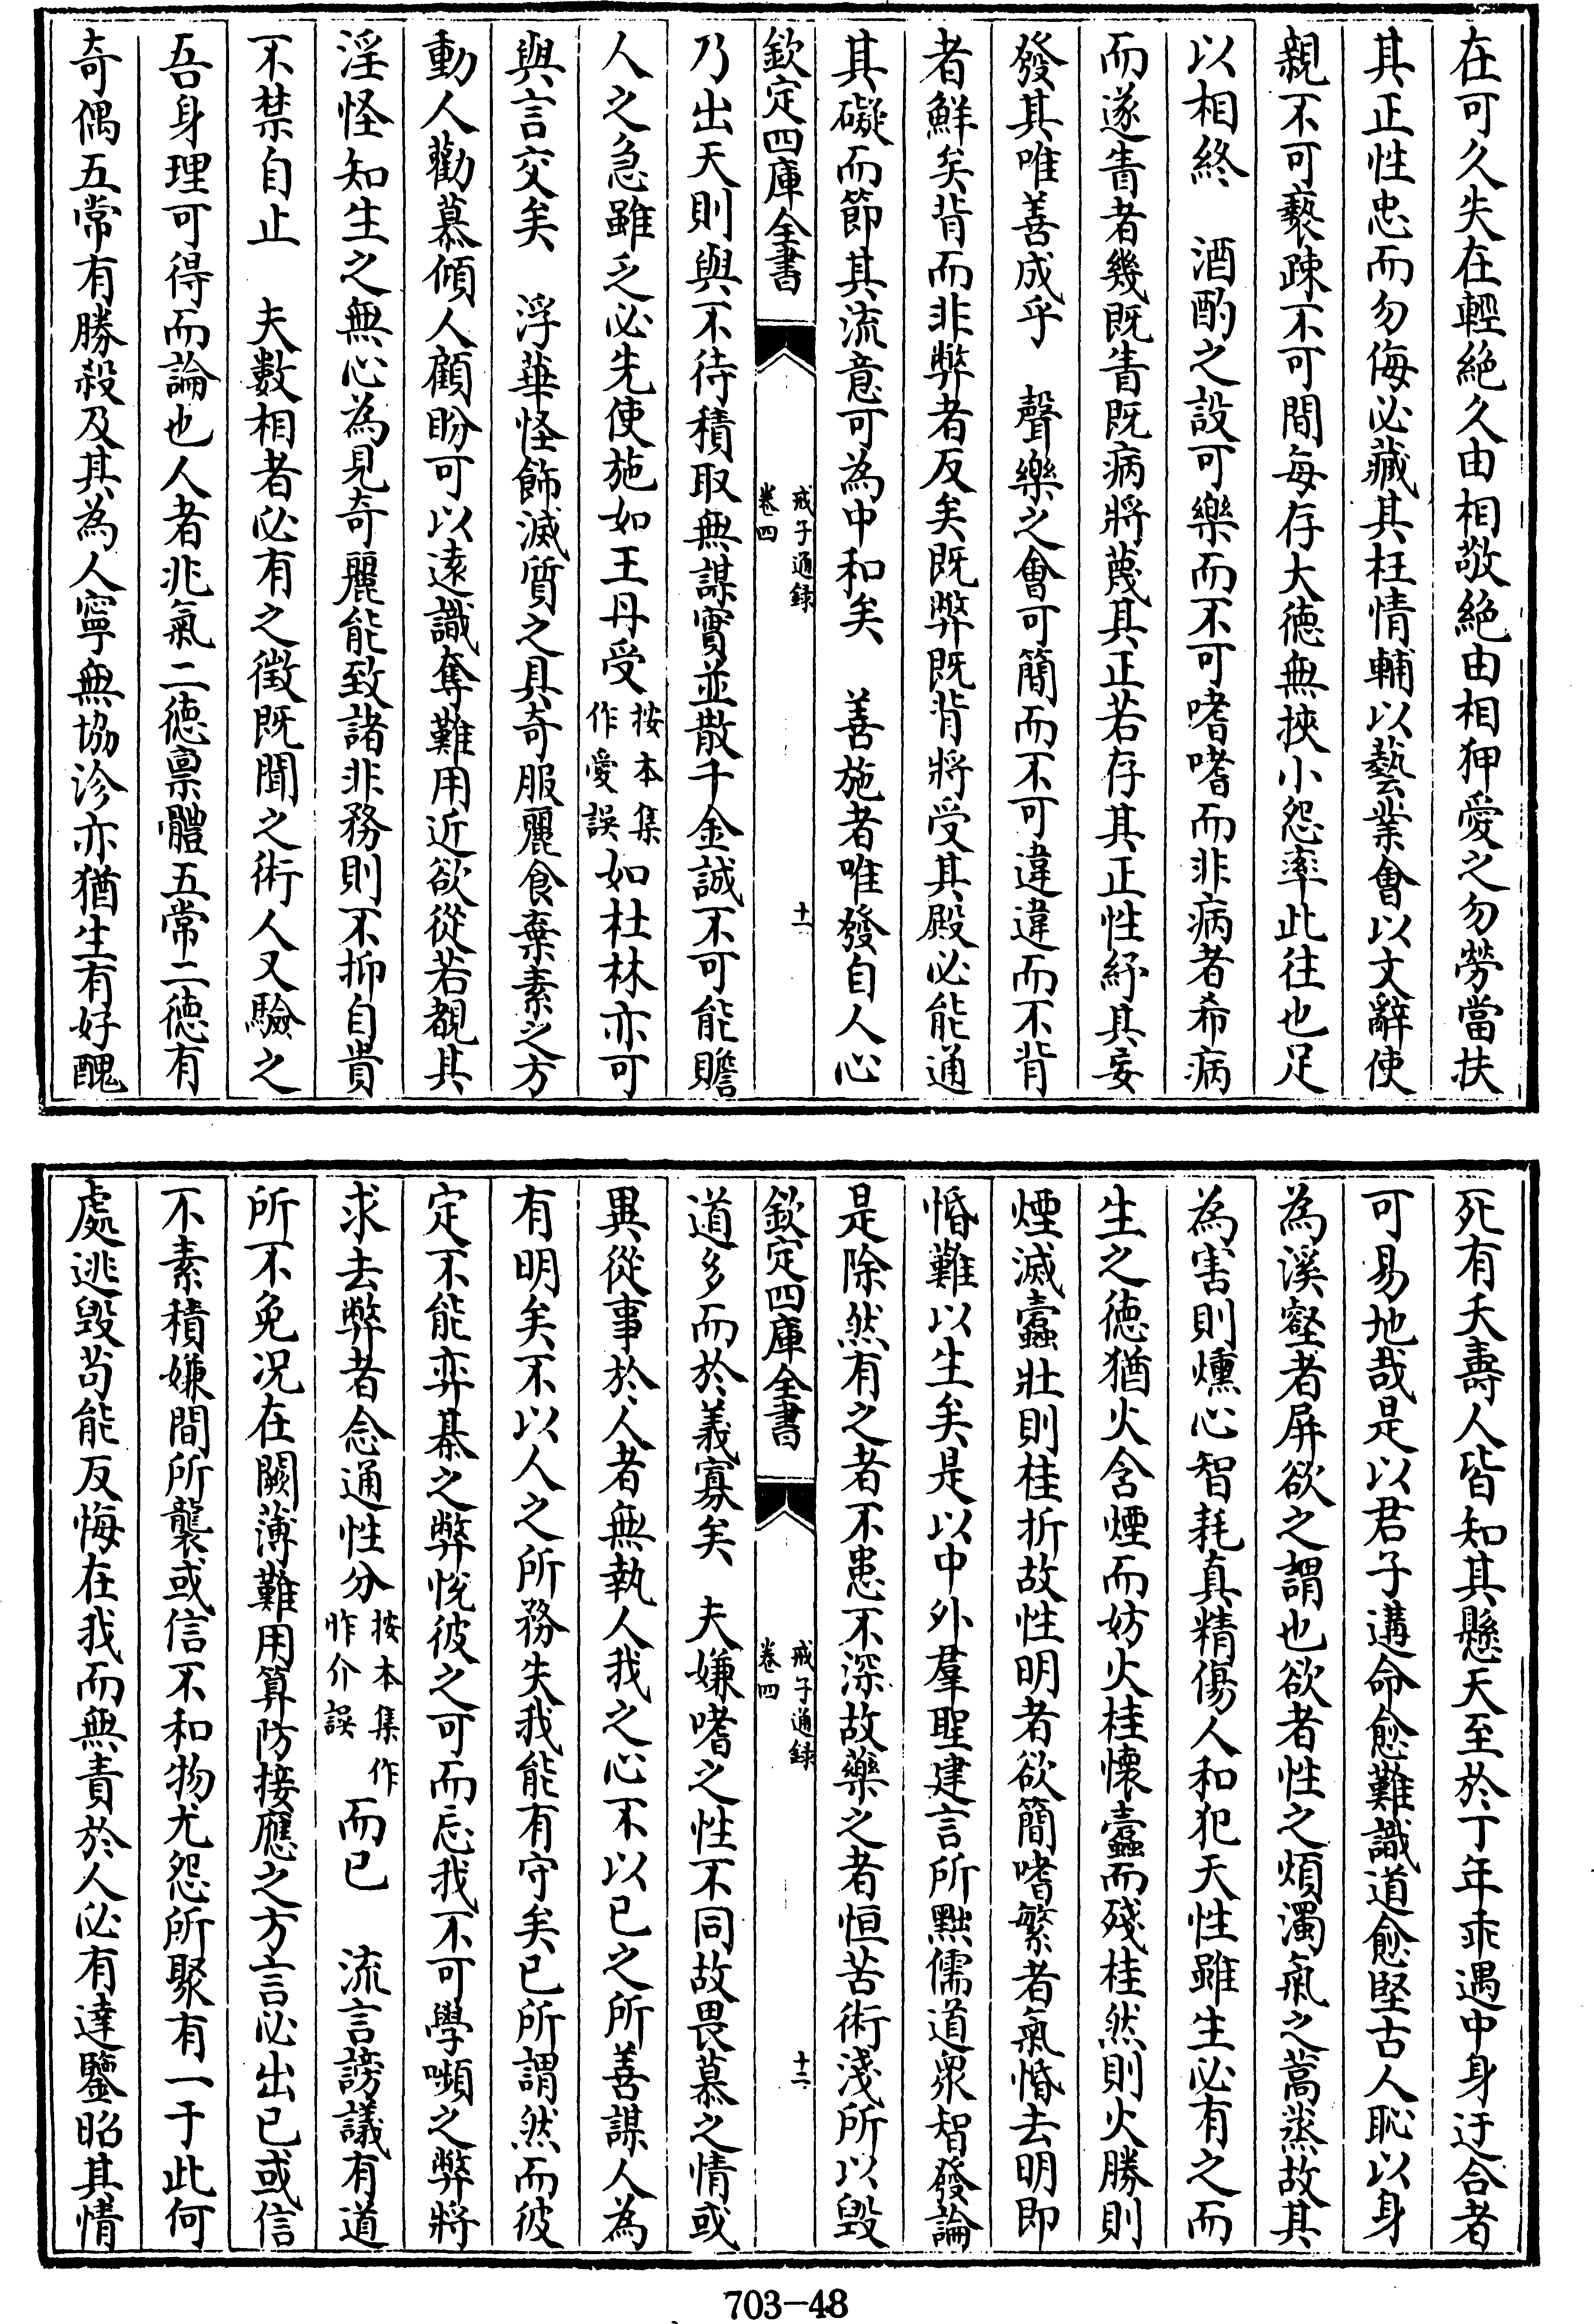 在可久失在輕絶久由相敬絶由相狎愛之勿勞當扶
其正性忠而勿侮必藏其枉情輔以藝業會以文辭使
親不可褻疎不可間每存大徳無挾小怨率此往也足
以相終　酒酌之設可樂而不可嗜嗜而非病者希病
而遂眚者幾既眚既病將蔑其正若存其正性紓其妄
發其唯善成乎　聲樂之會可簡而不可違違而不背
者鮮矣背而非弊者反矣既弊既背將受其殿必能通
其礙而節其流意可為中和矣　善施者唯發自人心
欽定四庫全書　戒子通録　卷四　十一
乃出天則與不待積取無謀實並散千金誠不可能贍
人之急雖乏必先使施如王丹受按本集作愛誤如杜林亦可
與言交矣　浮華怪飾滅質之具奇服麗食棄素之方
動人勸慕傾人顧盼可以遠識奪難用近欲從若覩其
淫怪知生之無心為見奇麗能致諸非務則不抑自貴
不禁自止　夫數相者必有之徴既聞之術人又驗之
吾身理可得而論也人者兆氣二徳禀體五常二徳有
奇偶五常有勝殺及其為人寧無協沴亦猶生有好醜
死有夭壽人皆知其懸天至於丁年乖遇中身迂合者
可易地哉是以君子遘命愈難識道愈堅古人恥以身
為溪壑者屏欲之謂也欲者性之煩濁氣之蒿蒸故其
為害則燻心智耗真精傷人和犯天性雖生必有之而
生之徳猶火含煙而妨火桂懷蠧而殘桂然則火勝則
煙滅蠧壯則桂折故性明者欲簡嗜繁者氣惛去明即
惛難以生矣是以中外羣聖建言所黜儒道衆智發論
是除然有之者不患不深故藥之者恒苦術淺所以毁
欽定四庫全書　戒子通録　卷四　十二
道多而於義寡矣　夫嫌嗜之性不同故畏慕之情或
異從事於人者無執人我之心不以已之所善謀人為
有明矣不以人之所務失我能有守矣已所謂然而彼
定不能弈棊之弊悦彼之可而忘我不可學嚬之弊將
求去弊者念通性分按本集作怍介誤而已　流言謗議有道
所不免況在闕薄難用算防接應之方言必出已或信
不素積嫌間所襲或信不和物尤怨所聚有一于此何
處逃毁苟能反悔在我而無責於人必有達鑒昭其情
703-48